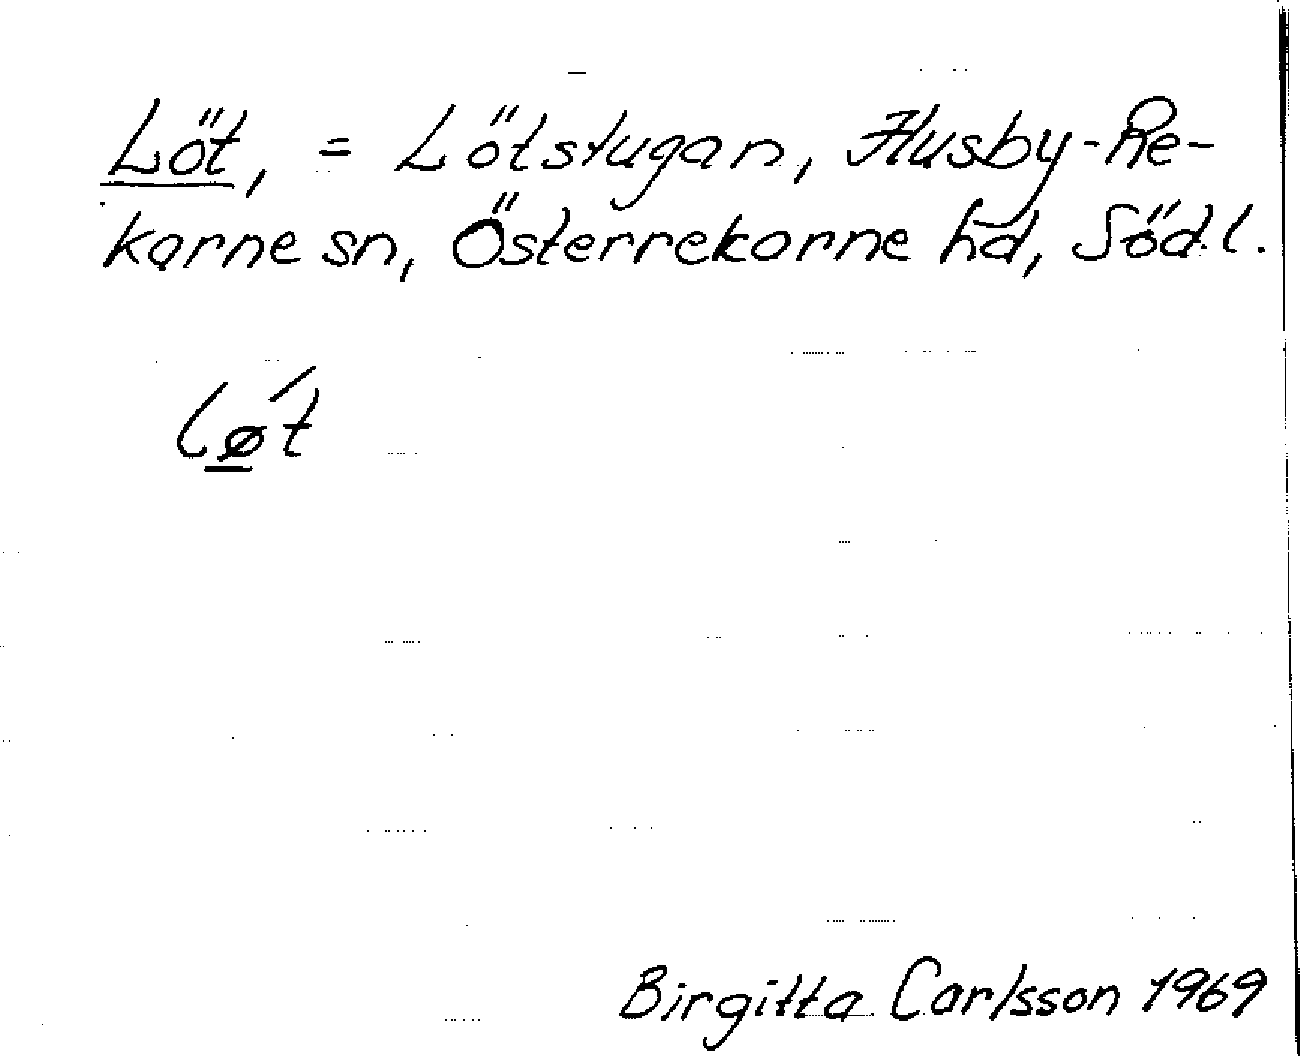 Löt, = Lötstugan, Husby-Re-
karne sn, Österrekarne hd, Södl.
lǿ̲t
Birgitta Carlsson 1969